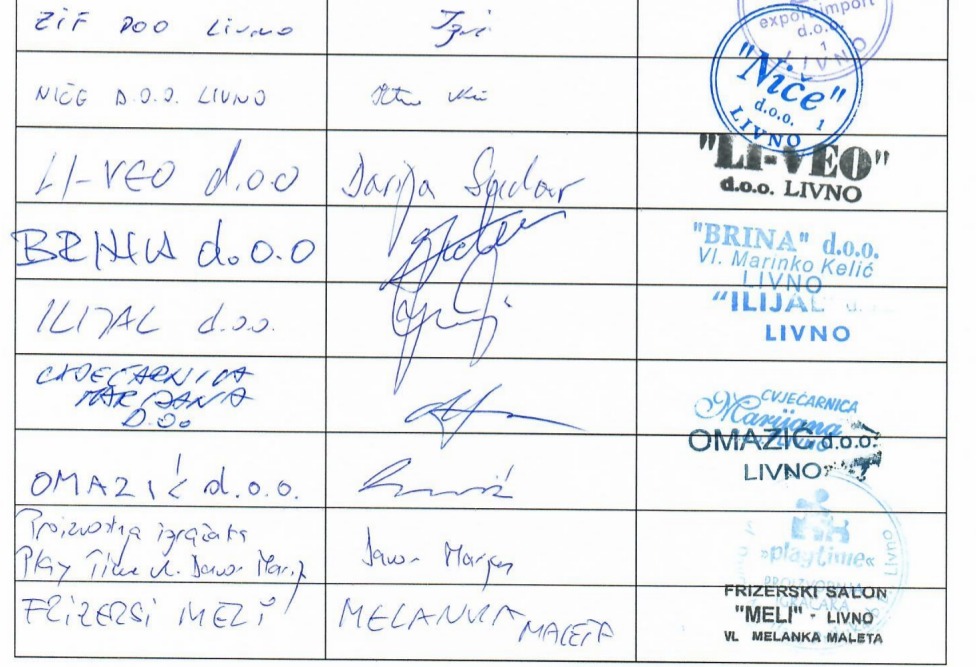 ZIF DOO LIVNO
export import
d.o.o.
1
LIVNO
NIČE D.O.O. LIVNO
"Niče"
d.o.o. 1
LIVNO
LI-VEO d.o.o
Darija
"LI-VEO"
d.o.o. LIVNO
BRINA d.o.o
"BRINA" d.o.o.
Vl. Marinko Kelić
LIVNO
ILIJAL d.o.o.
"ILIJAL" d.
LIVNO
CVJEĆARNICA
MARIJANA
D.OO
CVJEĆARNICA
Marijana
OMAZIĆ d.o.o.
OMAZIĆ d.o.o.
LIVNO
Proizvodnja igračaka
Play Time vl. Davor
Davor
»playtime«
PROIZVODNJA
IGRAČAKA
Livno
FRIZERSI MELI
MELANKA MALETA
FRIZERSKI SALON
"MELI" - LIVNO
VL. MELANKA MALETA